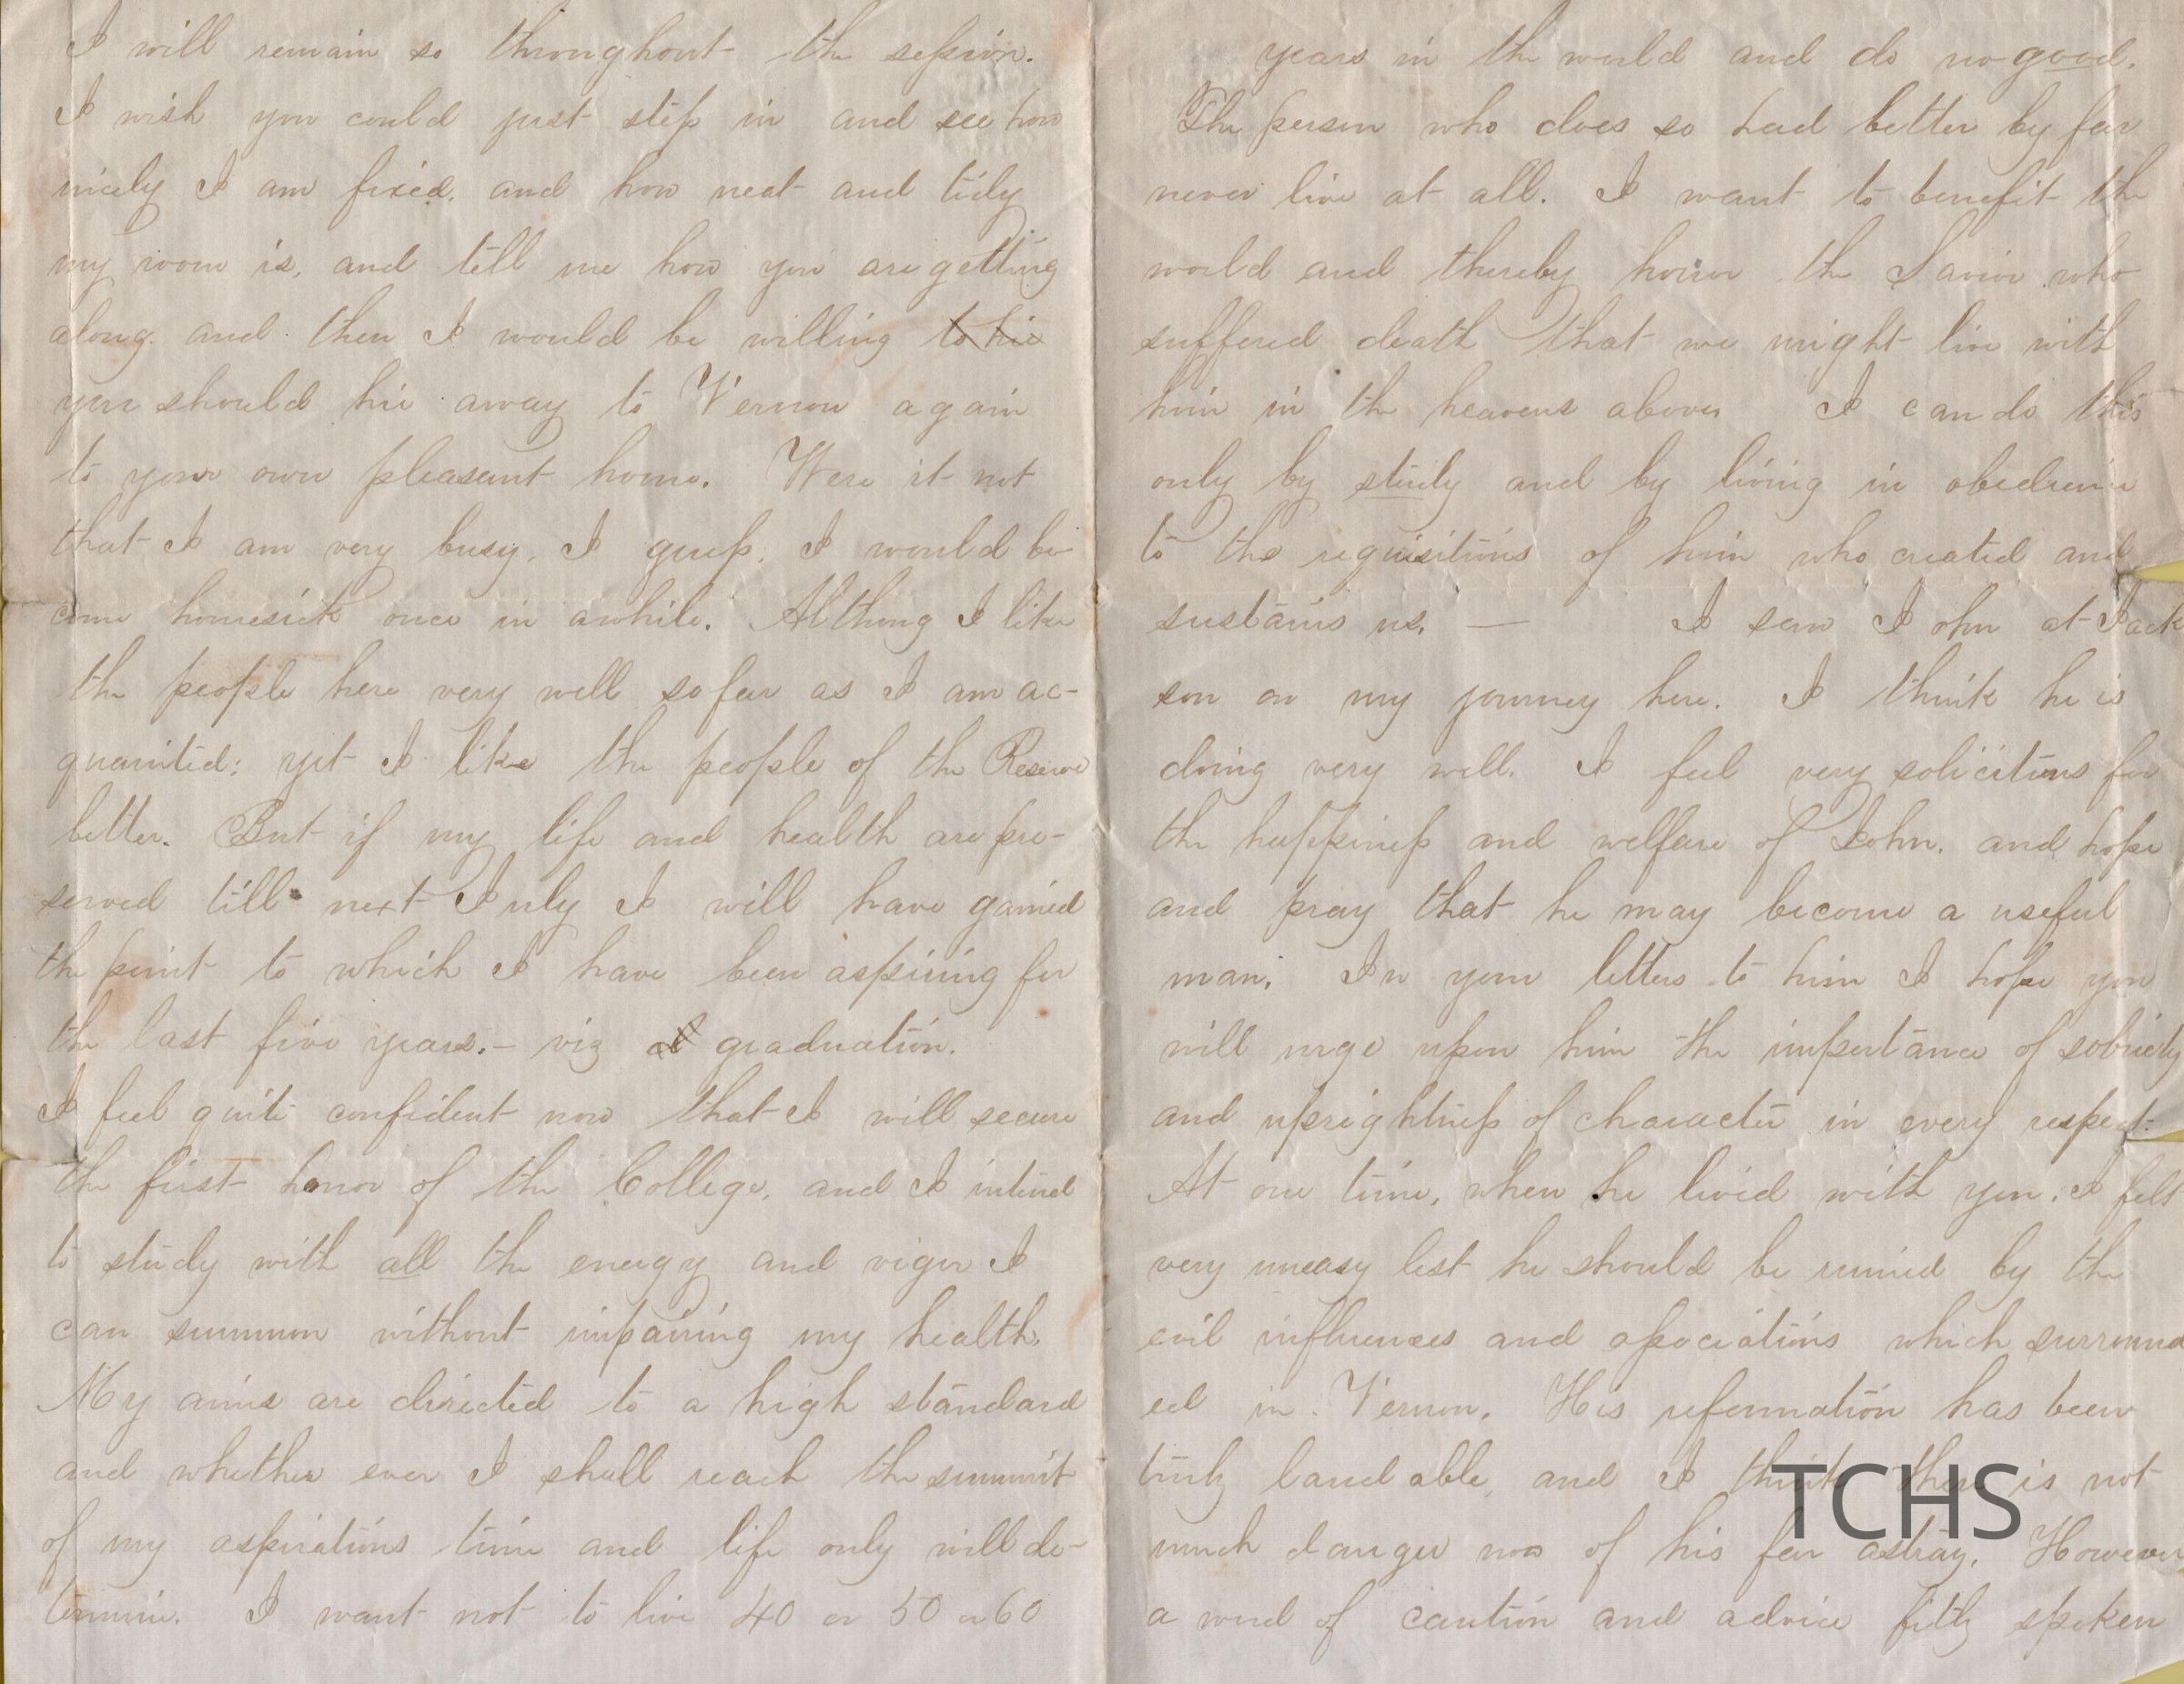 I will remain so throughout the session.
I wish you could just step in and see how
nicely I am fixed, and how neat and tidy
my room is, and tell me how you are getting
along. and then I would be willing to hie
you should hie away to Vernon again
to your own pleasant home. Were it not
that I am very busy, I guess, I would be-
come homesick once in awhile. Althoug I like
the people here very well so far as I am ac-
quainted; yet I like the people of the Reserve
better. But if my life and health are pre-
served till next July I will have gained
the point to which I have been aspiring for
the last five years.– viz graduation.
I feel quite confident now that I will secure
the first honor of the College, and I intend
to study with all the energy and vigor I
can summon without impairing my health.
My aims are directed to a high standard
and whether ever I shall reach the summit
of my aspirations time and life only will de-
termine. I want not to live 40 or 50 or 60
years in the world and do no good.
The person who does so had better by far
never live at all. I want to benefit the
world and thereby honor the Savior who
suffered death that we might live with
him in the heavens above. I can do this
only by study and by living in obedience
to the requisitions of him who created and
sustains us. — I saw John at Jack
son on my journey here. I think he is
doing very well. I feel very solicitous for
the happiness and welfare of John. and hope
and pray that he may become a useful
man. In your letters to him I hope you
will urge upon him the importance of sobriety
and uprightness of character in every respect.
At one time, when he lived with you, I felt
very uneasy lest he should be ruined by the
evil influences and associations which surround
ed in Vernon. His reformation has been
truly laudable, and I think there is not
much danger now of his far astray. However
a word of caution and advice fitly spoken
TCHS